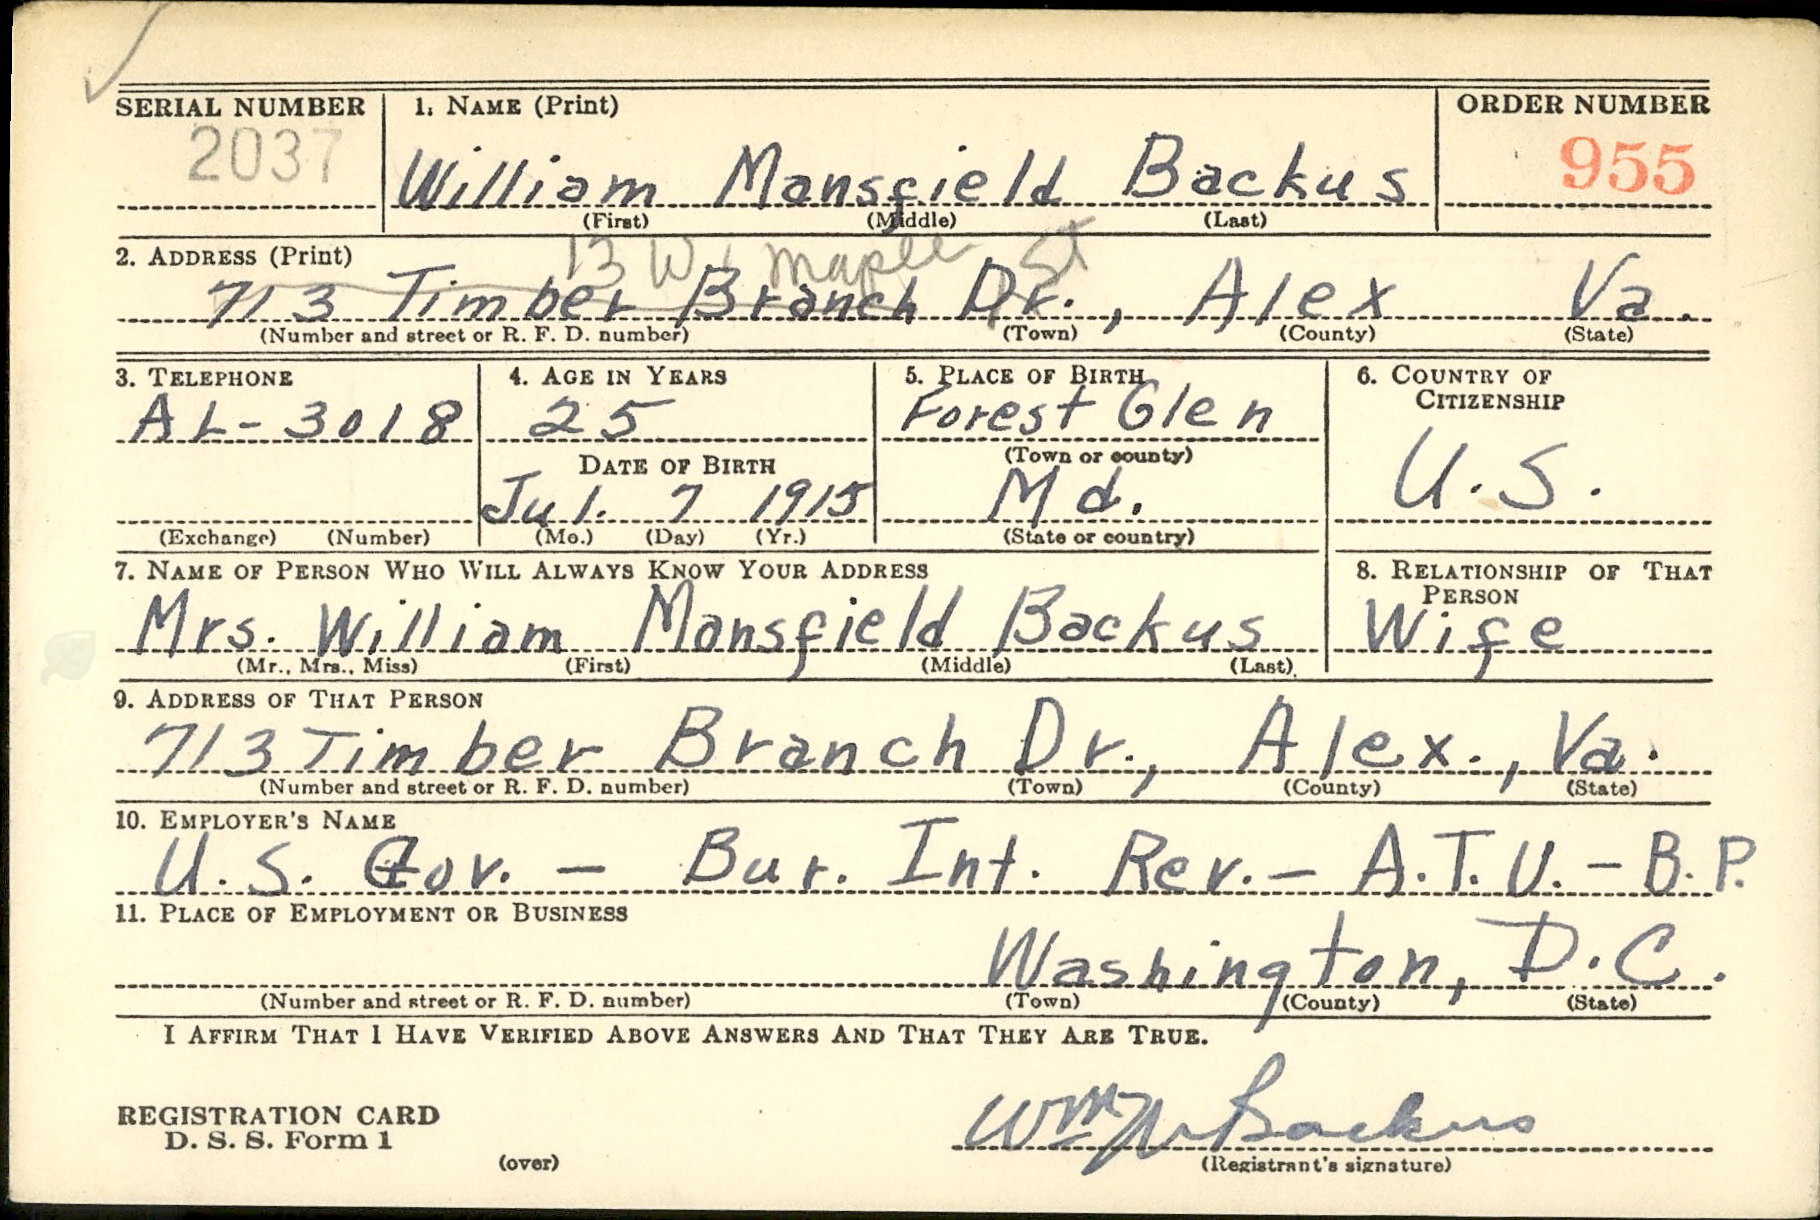 SERIAL NUMBER 1. NAME (Print) ORDER NUMBER
2037 William Mansfield Backus 955
(First) (Middle) (Last)
2. ADDRESS (Print) 13 W. Maple St
713 Timber Branch Dr., Alex Va.
(Number and street or R. F. D. number) (Town) (County) (State)
3. TELEPHONE 4. AGE IN YEARS 5. PLACE OF BIRTH 6. COUNTRY OF
CITIZENSHIP
AL-3018 25 Forest Glen
(Town or county)
DATE OF BIRTH
Jul. 7 1915 Md. U.S.
(Exchange) (Number) (Mo.) (Day) (Yr.) (State or country)
7. NAME OF PERSON WHO WILL ALWAYS KNOW YOUR ADDRESS 8. RELATIONSHIP OF THAT
PERSON
Mrs. William Mansfield Backus Wife
(Mr., Mrs., Miss) (First) (Middle) (Last)
9. ADDRESS OF THAT PERSON
713 Timber Branch Dr., Alex., Va.
(Number and street or R. F. D. number) (Town) (County) (State)
10. EMPLOYER'S NAME
U.S. Gov. - Bur. Int. Rev. - A.T.U. - B.P.
11. PLACE OF EMPLOYMENT OR BUSINESS
Washington, D.C.
(Number and street or R. F. D. number) (Town) (County) (State)
I AFFIRM THAT I HAVE VERIFIED ABOVE ANSWERS AND THAT THEY ARE TRUE.
REGISTRATION CARD
D. S. S. Form 1
Wm M Backus
(over) (Registrant's signature)